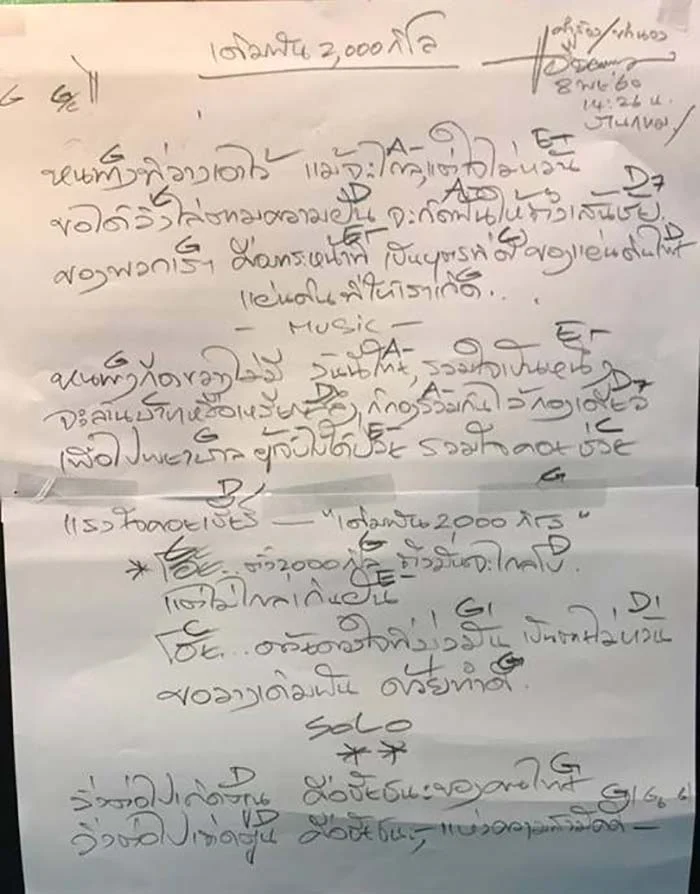 เติมฝัน 2,000 กิโล
คำร้อง/ทำนอง
8 พย 60
14:26 น.
G G/C
G A- E-
หนทางที่วางเอาไว้ แม้จะไกลแต่ใจไม่หวั่น
G D A- D7
ขอได้วิ่งไล่ตามความฝัน จะกัดฟันให้ถึงเส้นชัย
G E- C D
ของพวกเรา คือภาระหน้าที่ เป็นบุตรที่ดีของแผ่นดินไทย
G
แผ่นดินที่ให้เราเกิด..
- MUSIC -
G A- E-
หนทางก็ดของไม่มี วันนี้ไทย รวมใจเป็นหนึ่ง
D A- D7
จะล้านบาทหรือเหรียญสลึง ก็กองรวมกันไว้กองเดียว
G E- C
เพื่อโรงพยาบาล ผู้เจ็บไข้ได้ป่วย รวมใจคอยช่วย
D/ G
แรงใจคอยเชียร์ — "เติมฝัน 2000 กิโล"
G G D
* โอ้ย... ตั้ง 2000 กิโล ถึงมันจะไกลโข
E-
แต่ไม่ไกลเกินฝัน
C G/ D/
โอ้ย... ด้วยดวงใจที่มุ่งมั่น เป็นตายไม่หวั่น
G
ขอวางเดิมพัน ด้วยทำดี
SOLO
**
D G
วิ่งต่อไปเถิดคุณ คือชัยชนะของคนไทย
D G/
วิ่งต่อไปเถิดคุณ คือชัยชนะ แห่งความ